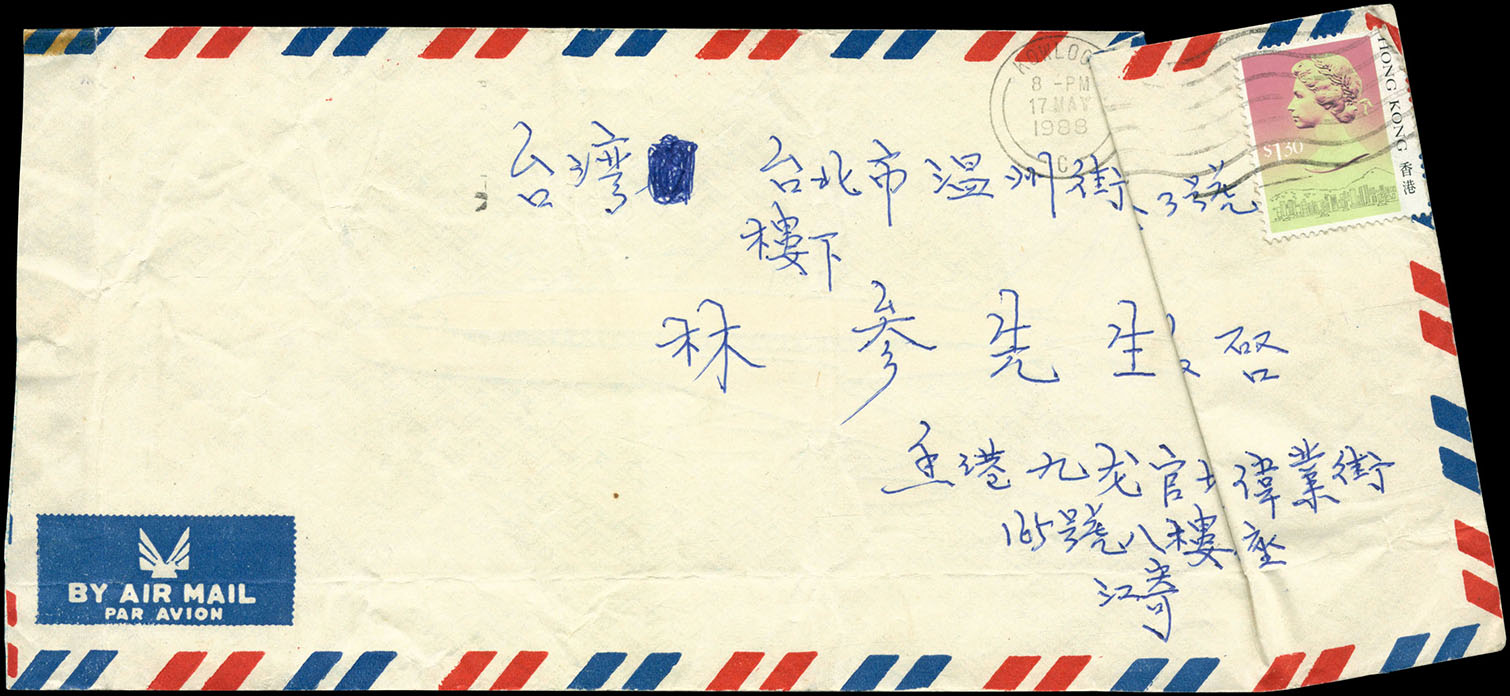 KOWLOO
8 -PM
17 MAY
1988
C
HONG KONG 香港
$1.30
台湾 台北市温州街 3號
樓下
林参先生 启
香港九龙官 偉業街
165號八樓 座
江寄
BY AIR MAIL
PAR AVION